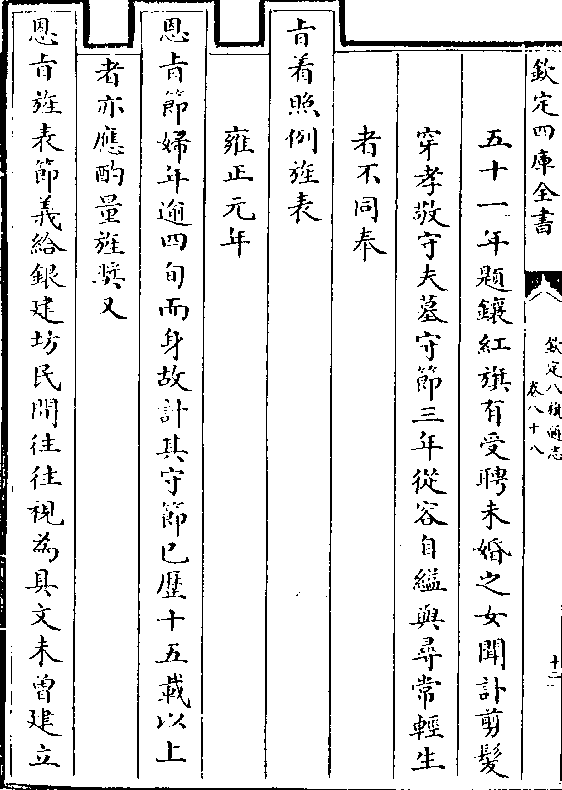 欽定四庫全書
欽定八旗通志
卷八十八
十二
五十一年題鑲紅旗有受聘未婚之女聞訃剪髮
穿孝敬守夫墓守節三年從容自縊與尋常輕生
者不同奉
旨着照例旌表
雍正元年
恩旨節婦年逾四旬而身故計其守節已歷十五載以上
者亦應酌量旌奬又
恩旨旌表節義給銀建坊民間往往視為具文未曾建立